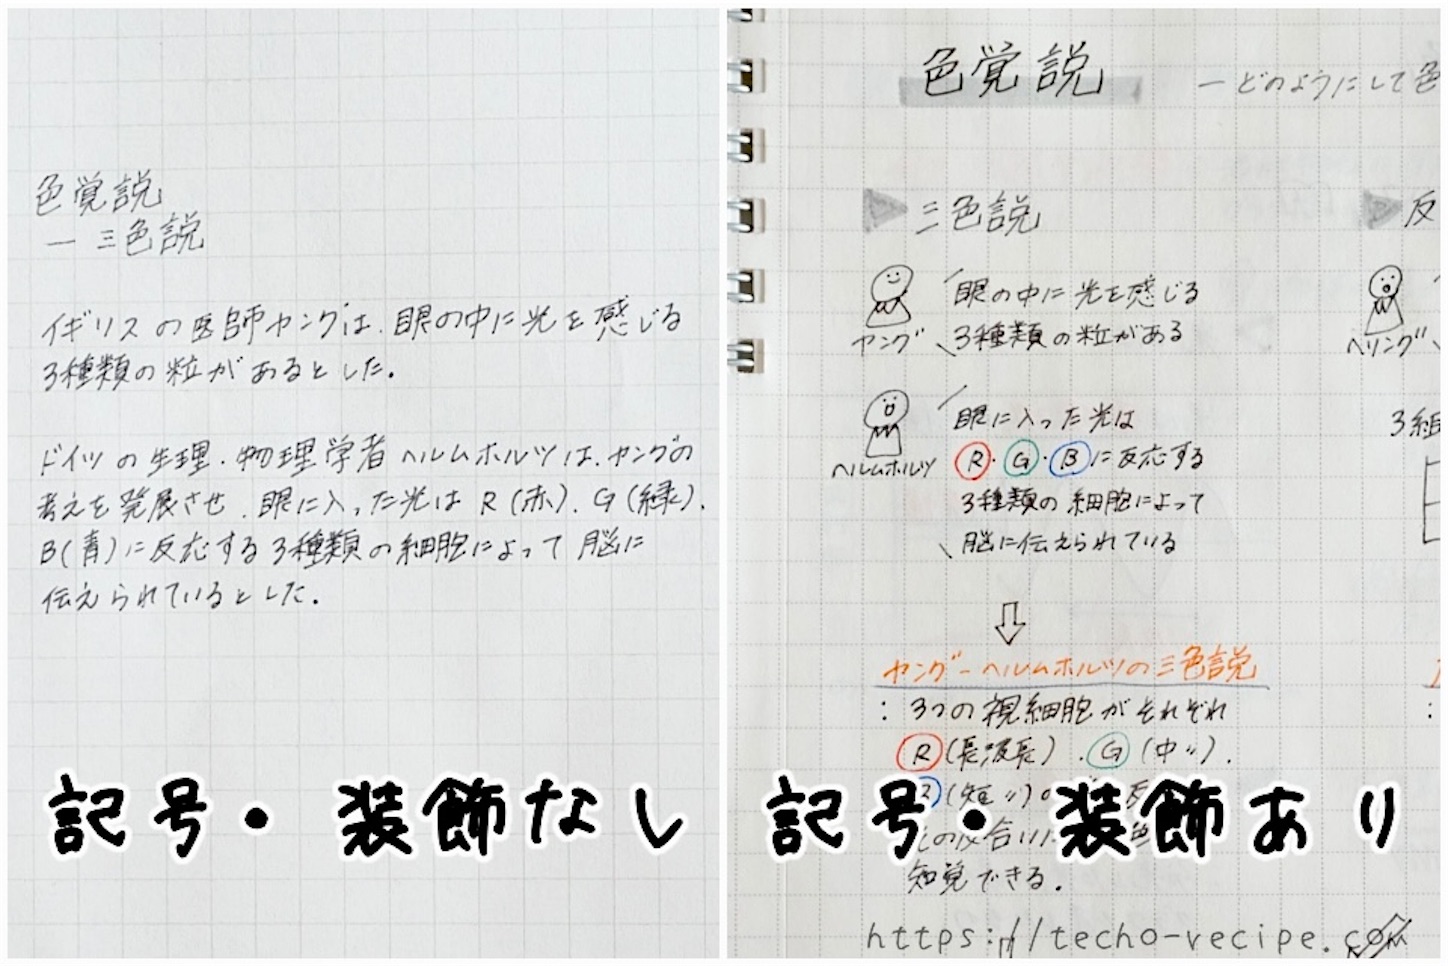 色覚説
― 三色説
イギリスの医師ヤングは、眼の中に光を感じる
3種類の粒があるとした。
ドイツの生理・物理学者ヘルムホルツは、ヤングの
考えを発展させ、眼に入った光はR(赤)、G(緑)、
B(青)に反応する3種類の細胞によって脳に
伝えられているとした。
記号・装飾なし
色覚説
―どのようにして色
三色説
眼の中に光を感じる
3種類の粒がある
ヤング
眼に入った光は
R・G・Bに反応する
3種類の細胞によって
脳に伝えられている
ヘルムホルツ
ヤング―ヘルムホルツの三色説
: 3つの視細胞がそれぞれ
R(長波長)、G(中〃)、
(短〃)
知覚できる。
反
ヘリング
3組
:
記号・装飾あり
https://techo-recipe.com